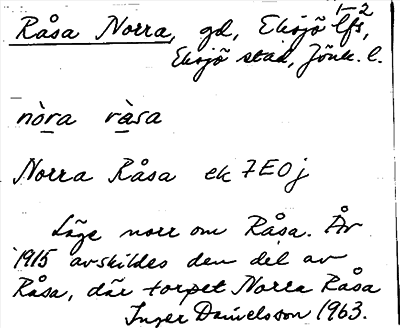 Råsa Norra, gd, Eksjö lfs, 1-2
Eksjö stad, Jönk. l.
nòra ràsa
Norra Råsa ek 7E0j
Läge norr om Råsa. År
1915 avskildes den del av
Råsa, där torpet Norra Råsa
Inger Danielsson 1963.